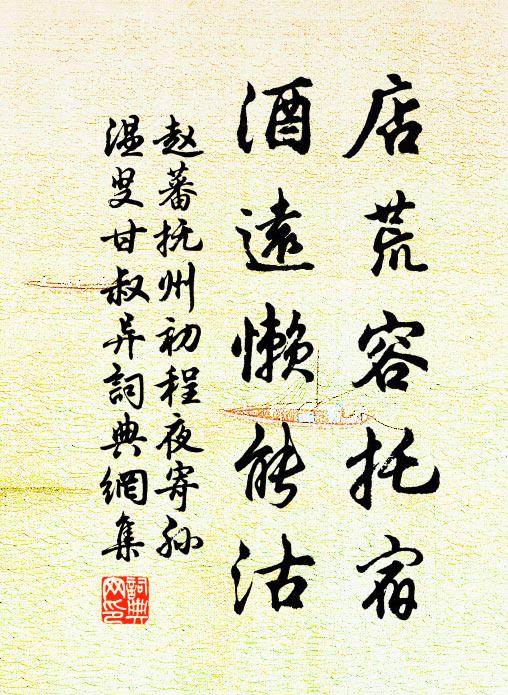 店荒容托宿
酒遠懒能沽
赵蕃抚州初程夜寄孙
温叟甘叔异詞典網集
詞典
网印